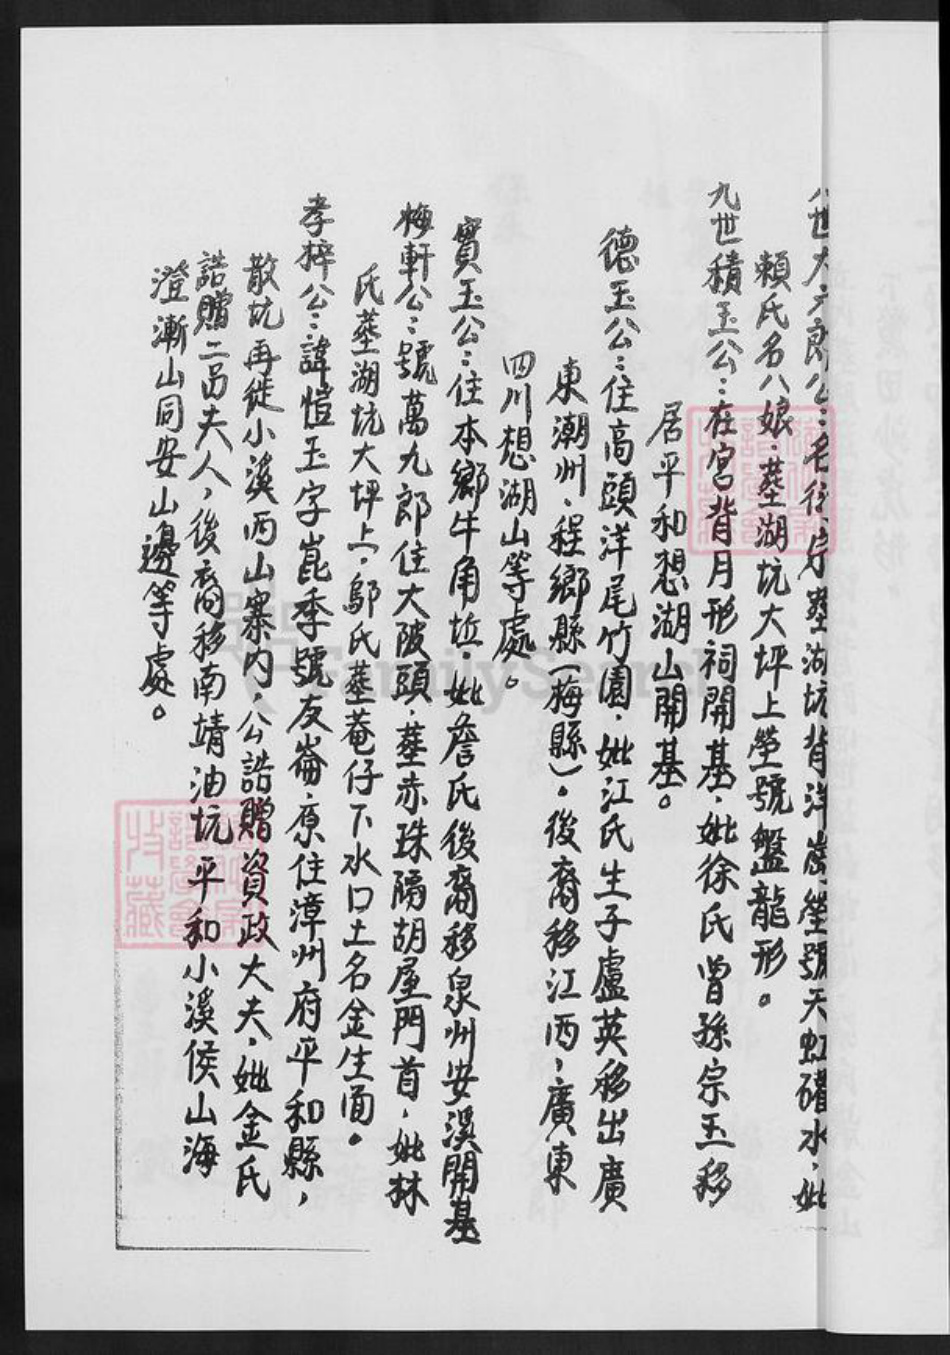 八世大六郎公：名衍宗塟湖坑背洋崗塋號天虹罐水，妣
賴氏名八娘：塟湖坑大坪上塋號盤龍形。
九世積玉公：在宮背月形祠開基，妣徐氏曾孫宗玉移
居平和想湖山開基。
德玉公：住高頭洋尾竹園，妣江氏生子盧英移出廣
東潮州、程鄉縣（梅縣）。後裔移江西，廣東
四川想湖山等處。
寳玉公：住本鄉牛角坵，妣詹氏後裔移泉州安溪開基
梅軒公：號萬九郎住大陂頭，塟赤珠隔胡屋門首，妣林
氏塟湖坑大坪上，鄔氏塟菴仔下水口土名金生面。
孝梓公：諱愷玉字崑季號友崙，原住漳州府平和縣，
散坑再徙小溪西山寨內，公誥贈資政大夫，妣金氏
誥贈二品夫人，後裔移南靖油坑平和小溪侯山海
澄漸山同安山邊等處。
FamilySearch